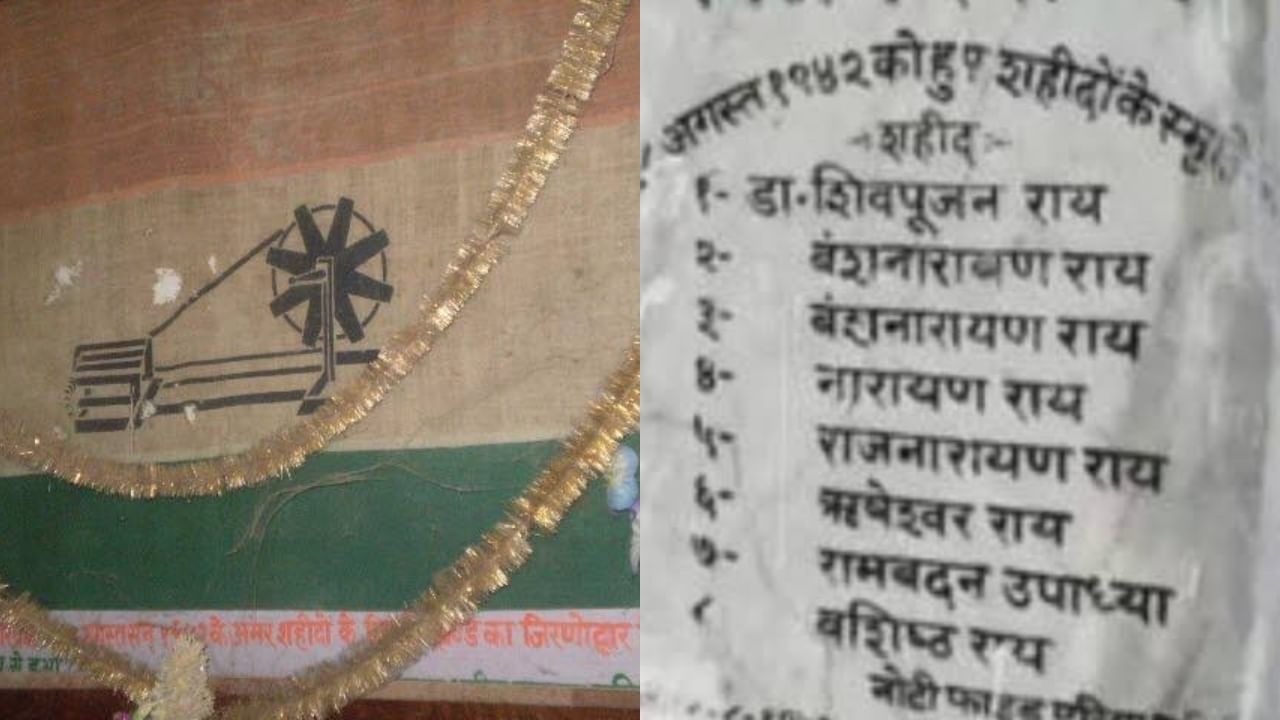 अगस्त १९४२ को हुए शहीदों के
शहीद
१- डा॰ शिवपूजन राय
२- बंशनारायण राय
३- बंशनारायण राय
४- नारायण राय
५- राजनारायण राय
६- ऋषेश्वर राय
७- रामबदन उपाध्या
८ वशिष्ठ राय
नोटीफाइड
के अमर शहीदो के
का जिरणोद्वार